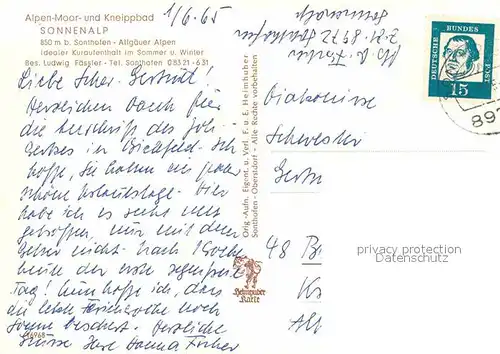 Alpen-Moor- und Kneippbad
SONNENALP
850 m b. Sonthofen - Allgäuer Alpen
Idealer Kuraufenthalt im Sommer u. Winter
Bes. Ludwig Fässler - Tel. Sonthofen 0 83 21 - 6 31
1/6.65
Liebe Schw. Gertrud!
Herzlichen Dank für
die
in Bielefeld. Ich
hoffe, Sie haben ein paar
schöne Urlaubstage. Hier
habe ich es sehr gut
getroffen, nur mit dem
Wetter nicht. Nach 1 Woche
heute der erste regenfreie
Tag! Nun hoffe ich, dass
die letzte Ferienwoche noch
Sonne beschert. Herzliche
Grüsse Ihre Hanna Fischer
16968
Orig.-Aufn. Eigent. u. Verl. F. u. E. Heimhuber
Sonthofen - Oberstdorf - Alle Rechte vorbehalten
Heimhuber
Karte
Abs. Fischer
8972
Sonnenalp
DEUTSCHE BUNDESPOST
15
897
Diakonisse
Schwester
Gertr
48 B
privacy protection
Datenschutz